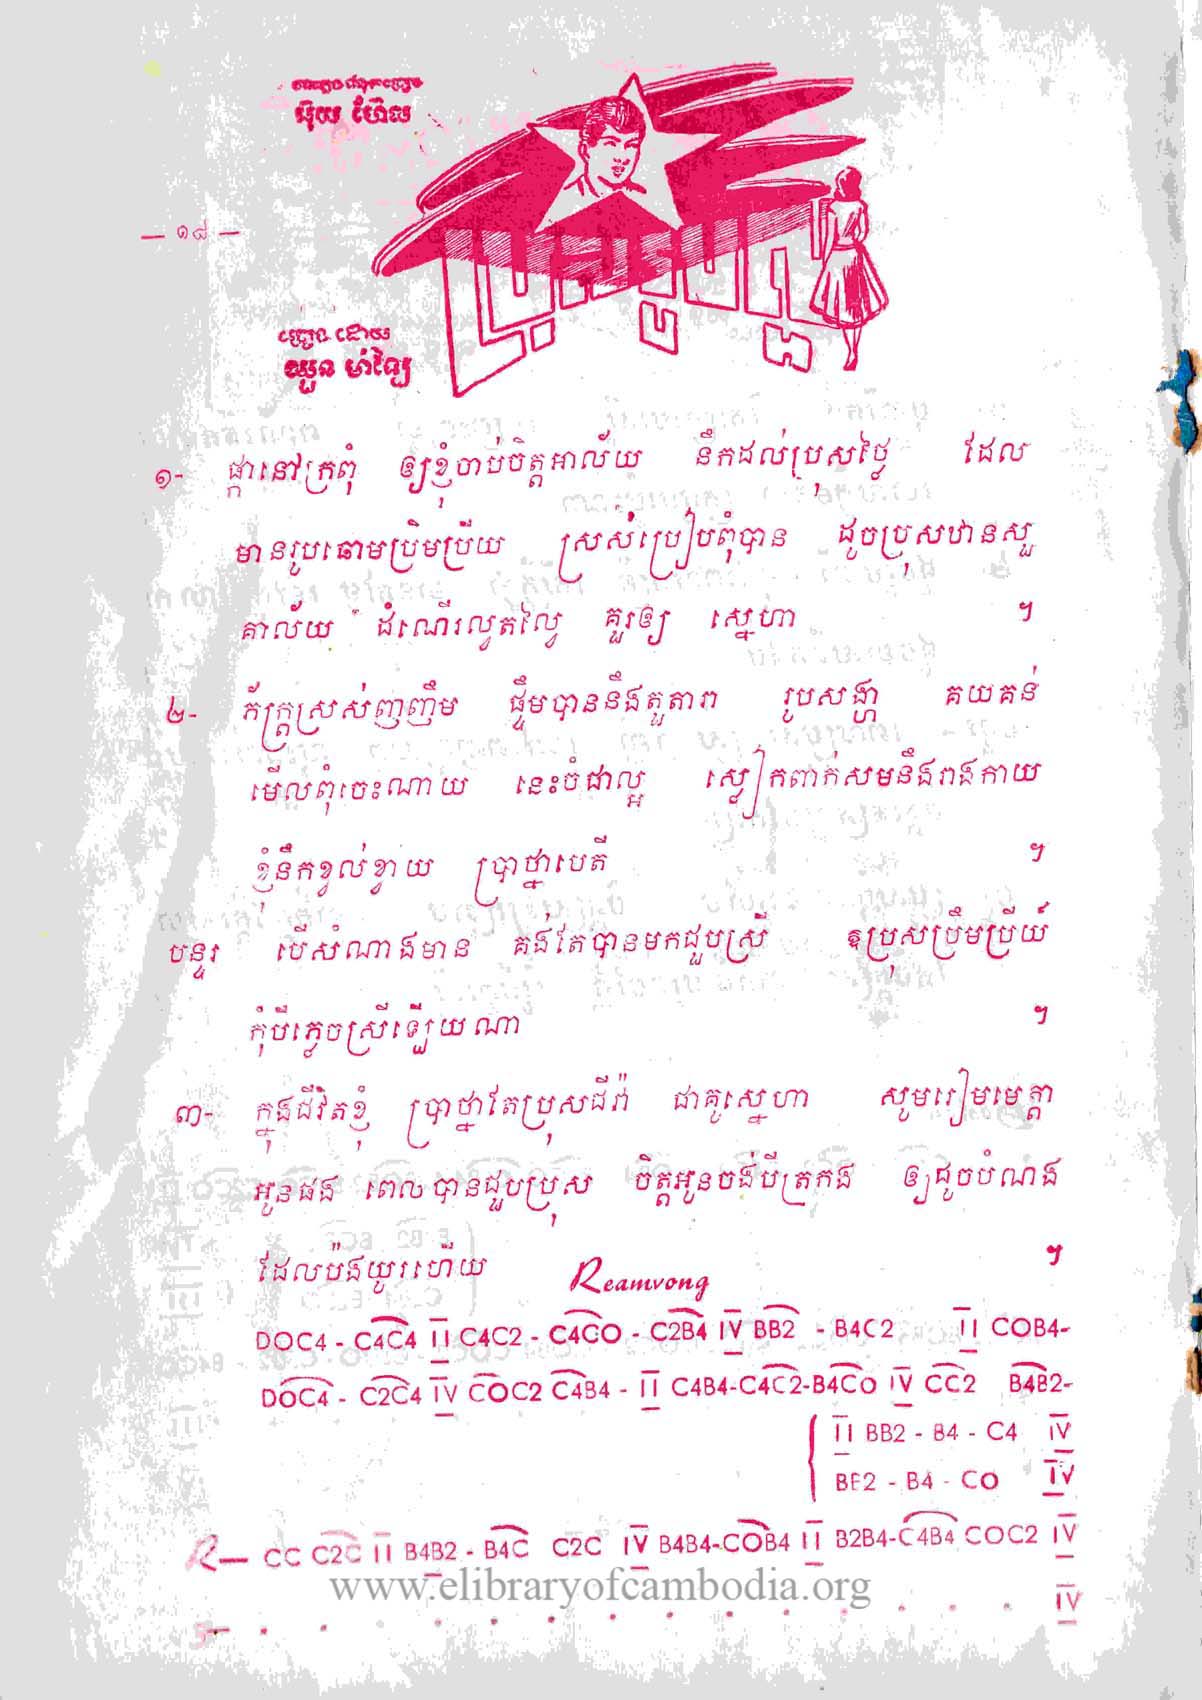 អ៊ុយ ហ៊ែល
— ១៨ —
ច្រៀង ដោយ
ឈួន ម៉ាឡៃ
ប្រុសរូបស្អាត
១- ផ្កានៅក្រពុំ ឲ្យខ្ញុំចាប់ចិត្តអាល័យ នឹកដល់ប្រុសថ្លៃ ដែល
មានរូបឆោមប្រិមប្រិយ ស្រស់ប្រៀបពុំបាន ដូចប្រុសឋានសួ
គាល័យ ដំណើរល្វតល្វៃ គួរឲ្យ ស្នេហា ។
២- ភ័ក្ត្រស្រស់ញញឹម ផ្ទឹមបាននឹងតួតារា រូបសង្ហា គយគន់
មើលពុំចេះណាយ នេះចំជាល្អ ស្លៀកពាក់សមនឹងរាងកាយ
ខ្ញុំនឹកខ្វល់ខ្វាយ ប្រាថ្នាបេតី ។
បន្ទរ បើសំណាងមាន គង់តែបានមកជួបស្រី ឱប្រុសប្រឹមប្រិយ៍
កុំបីភ្លេចស្រីឡើយណា ។
៣- ក្នុងជីវិតខ្ញុំ ប្រាថ្នាតែប្រុសជីវ៉ា ជាគូស្នេហា សូមរៀមមេត្តា
អូនផង ពេលបានជួបប្រុស ចិត្តអូនចង់បីត្រកង ឲ្យដូចបំណង
ដែលប៉ងយូរហើយ Reamvong ។
DOC4 - C4C4 II C4C2 - C4CO - C2B4 IV BB2 - B4C2 II COB4-
DOC4 - C2C4 IV COC2 C4B4 - II C4B4-C4C2-B4CO IV CC2 B4B2-
II BB2 - B4 - C4 IV
BB2 - B4 - CO IV
R— CC C2C II B4B2 - B4C C2C IV B4B4-COB4 II B2B4-C4B4 COC2 IV
www.elibraryofcambodia.org
. . . . . . . . . . . . IV